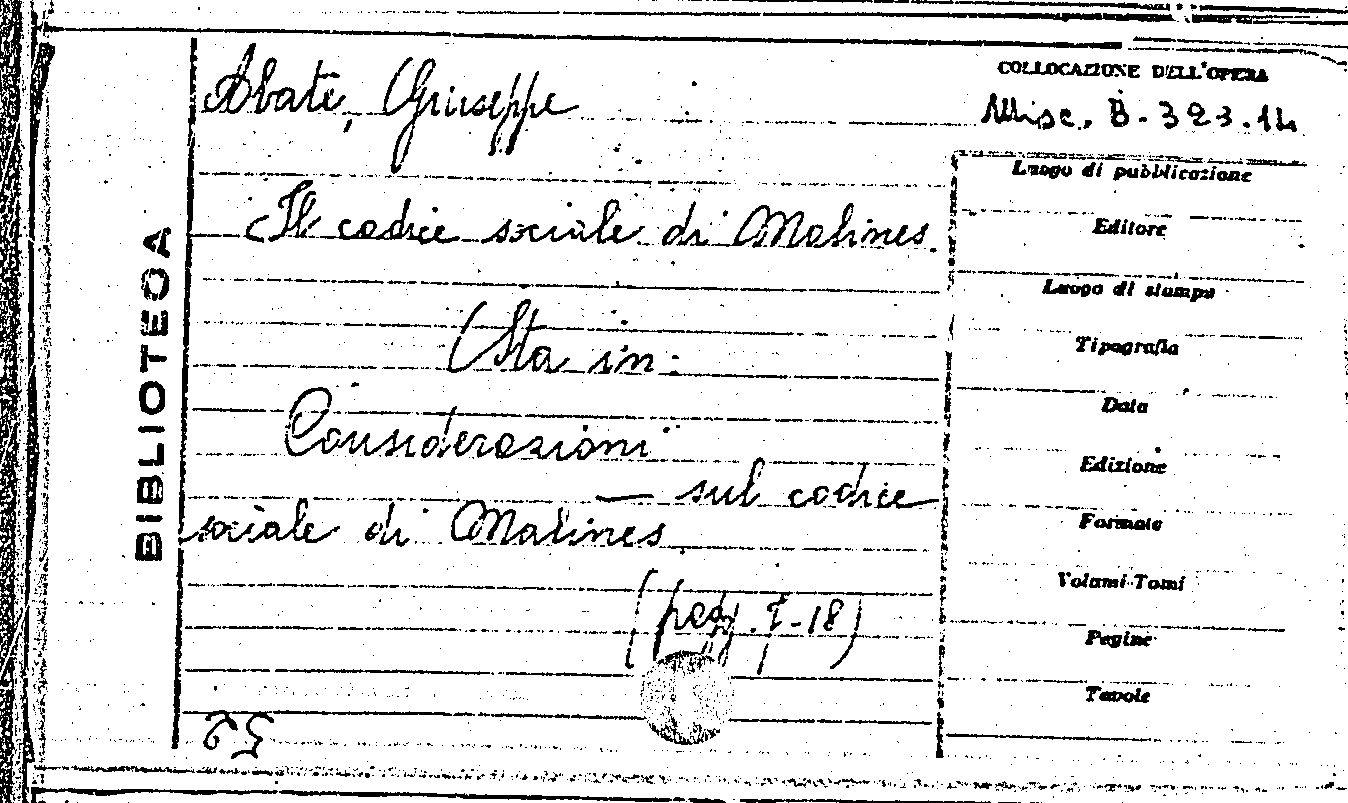 COLLOCAZIONE DELL'OPERA
Abate, Giuseppe
Misc. B. 323.14
Il codice sociale di Malines.
(Sta in:
Considerazioni
— sul codice
sociale di Malines
(pagg. 7-18)
BIBLIOTECA
Luogo di pubblicazione
Editore
Luogo di stampa
Tipografia
Data
Edizione
Formato
Volumi-Tomi
Pagine
Tavole